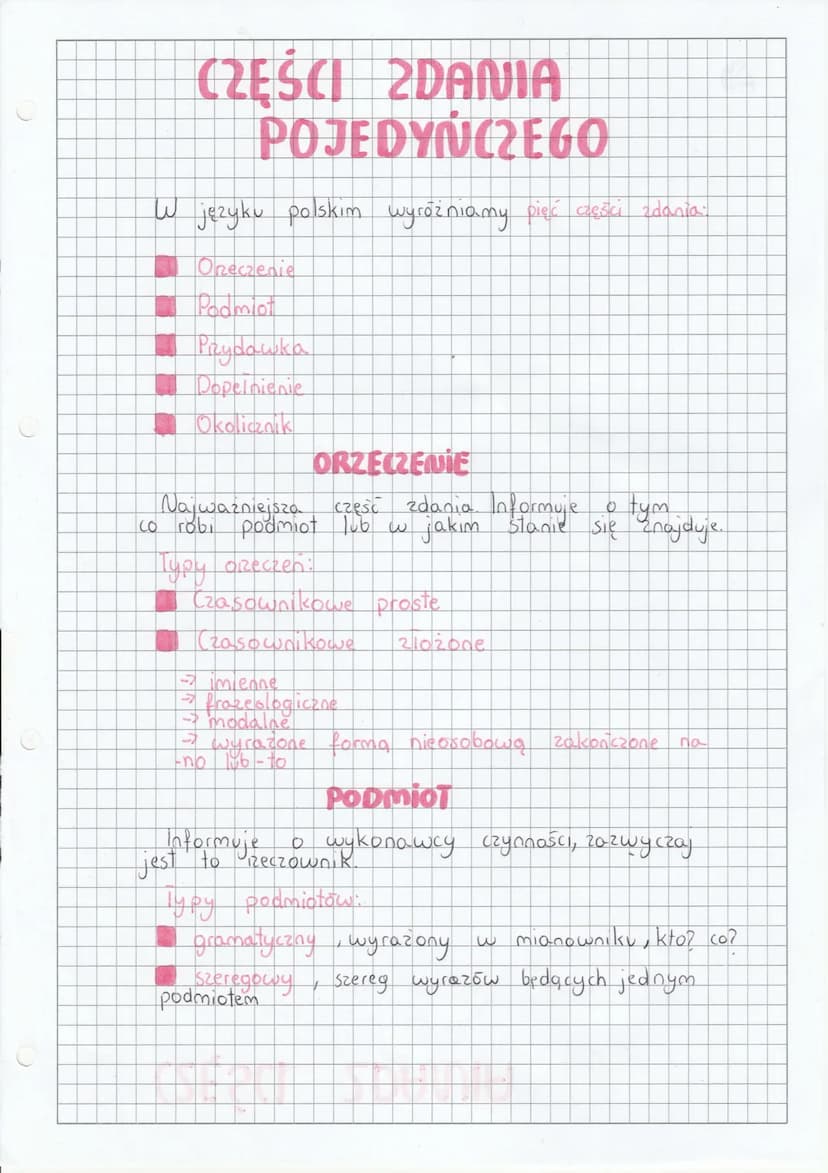 CZĘŚCI ZDANIA
POJEDYŃCZEGO
W języku polskim wyróżniamy pięć części zdania:
Orzeczenie
Podmiot
Przydawka
Dopełnienie
Okolicznik
ORZECZENIE
Najważniejsza część zdania. Informuje o tym
co robi podmiot lub w jakim stanie się znajduje.
Typy orzeczeń:
Czasownikowe proste
Czasownikowe złożone
→ imienne
→ frazeologiczne
→ modalne
→ wyrażone formą nieosobową zakończone na
-no lub -to
PODMIOT
Informuje o wykonawcy czynności, zazwyczaj
jest to rzeczownik.
Typy podmiotów:
gramatyczny, wyrażony w mianowniku, kto? co?
szeregowy, szereg wyrazów będących jednym
podmiotem
CZĘŚCI ZDANIA